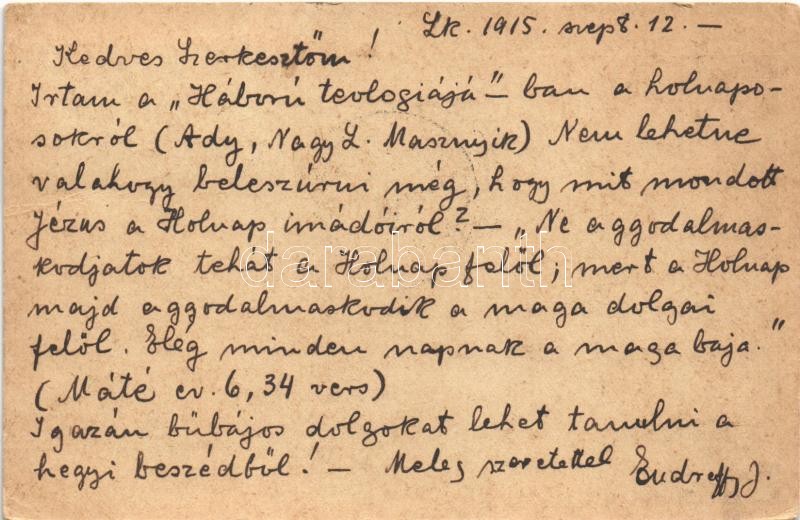 Lk. 1915. szept. 12. –
Kedves Szerkesztőm!
Irtam a „Háború teologiájá”-ban a holnapo-
sokról (Ady, Nagy L. Masznyik) Nem lehetne
valahogy beleszúrni még, hogy mit mondott
Jézus a Holnap imádóiról? – „Ne aggodalmas-
kodjatok tehát a Holnap felől; mert a Holnap
majd aggodalmaskodik a maga dolgai
felől. Elég minden napnak a maga baja.”
(Máté ev. 6, 34 vers)
Igazán bübájos dolgokat lehet tanulni a
hegyi beszédből! – Meleg szeretettel
Endreffy J.
darabanth